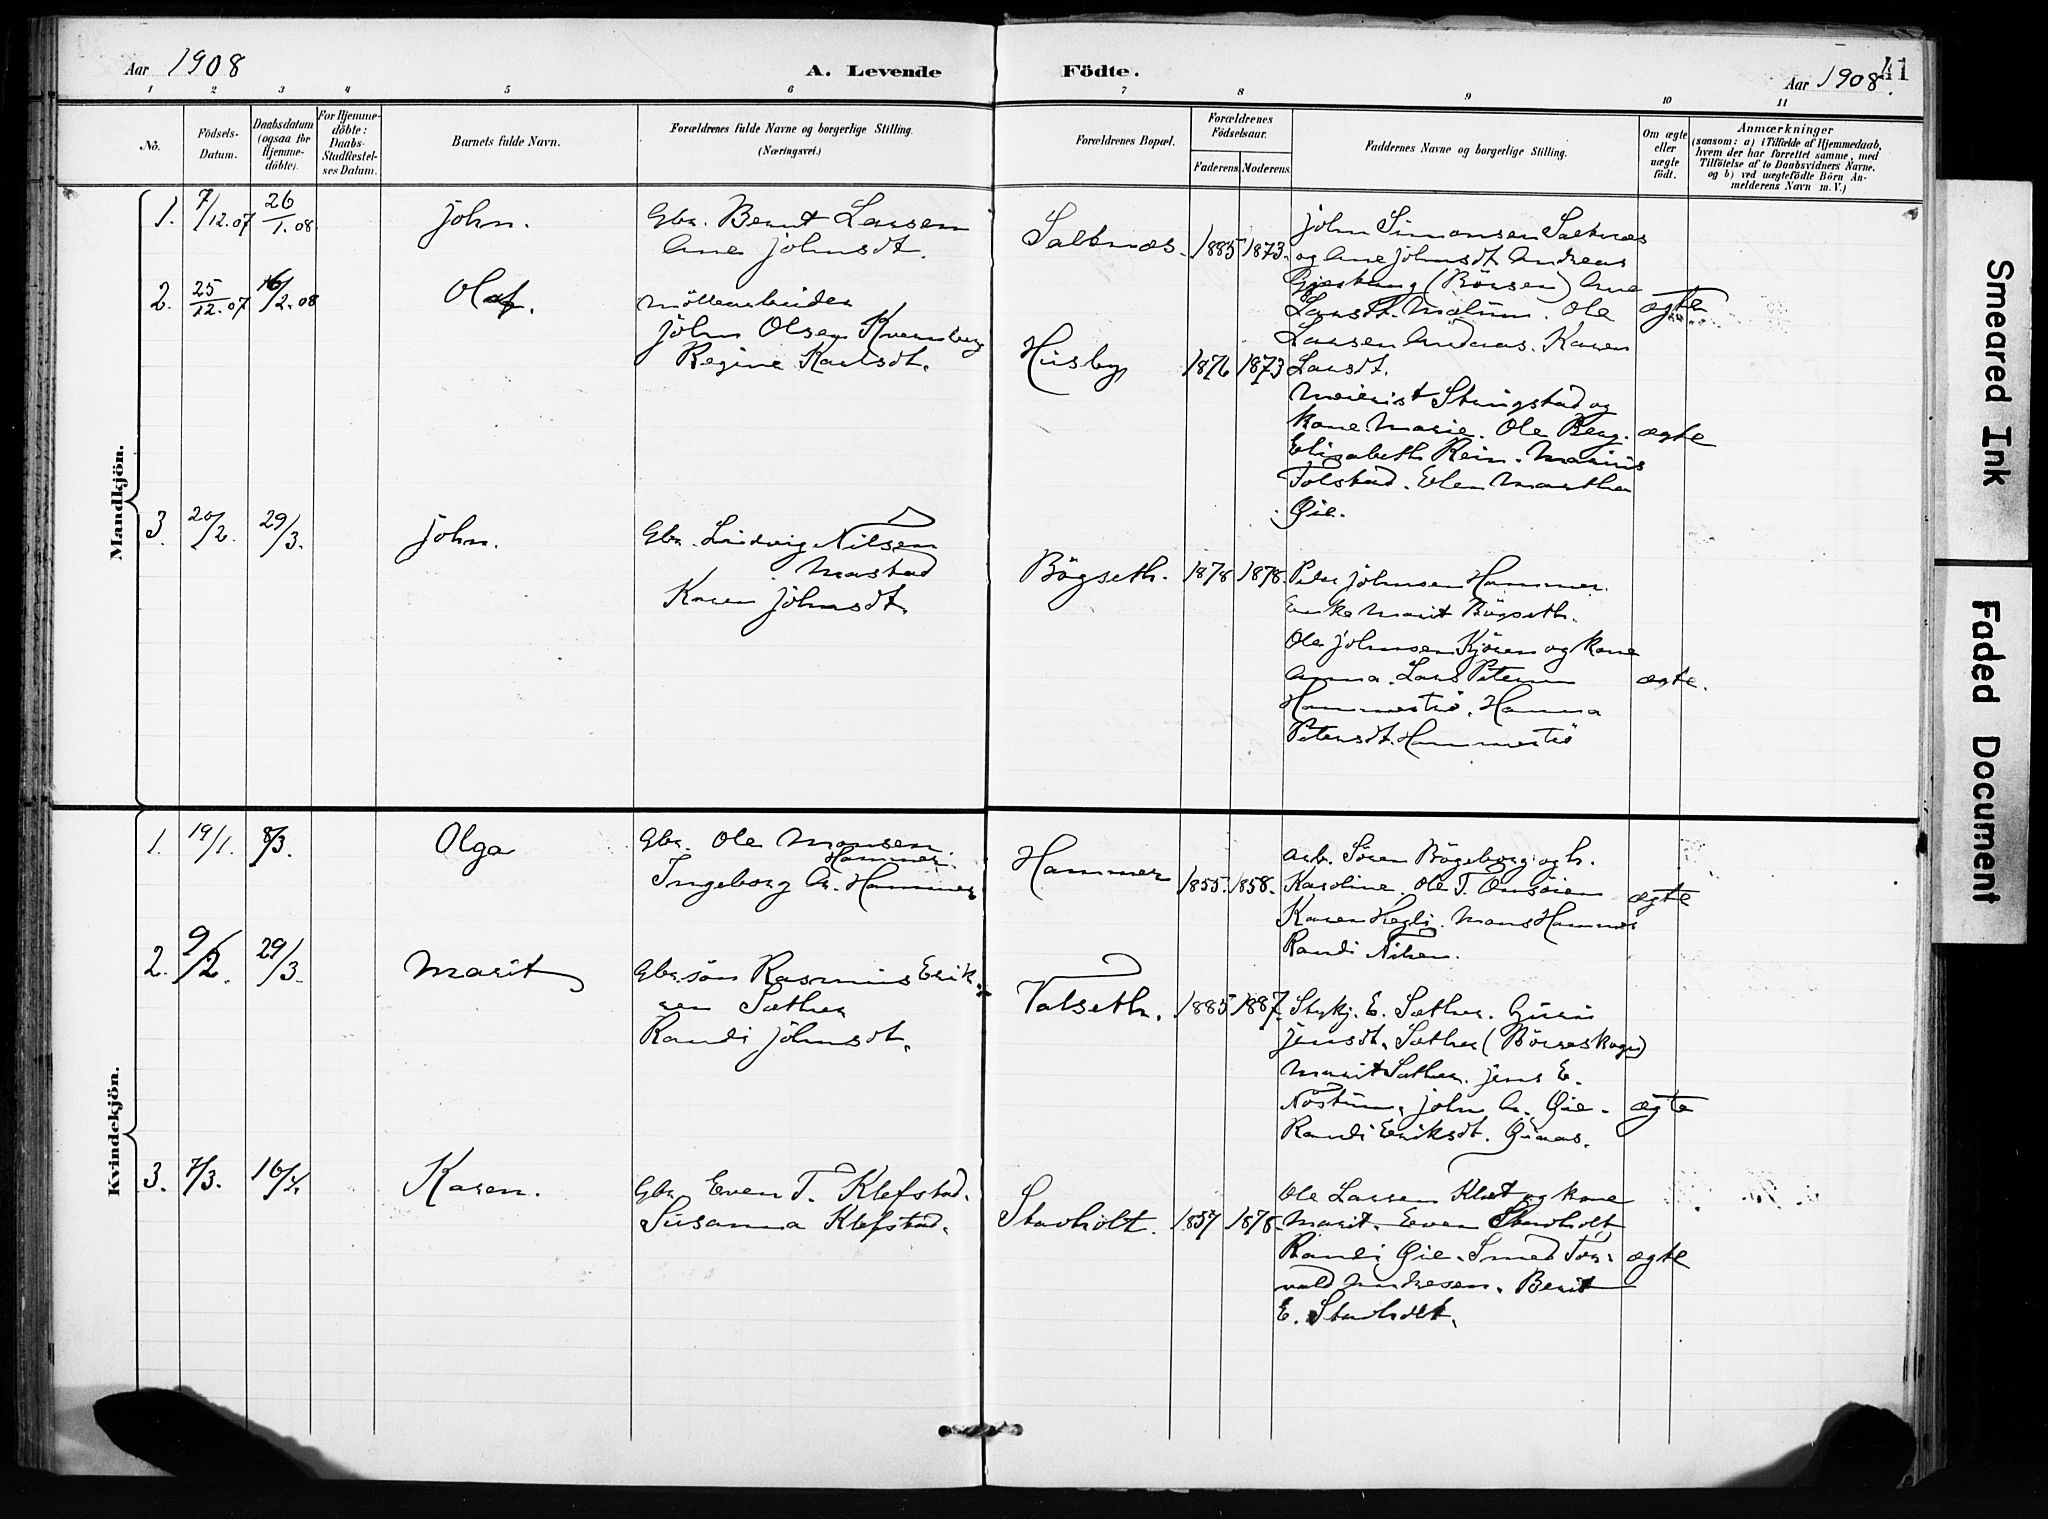 Aar 1908
A. Levende
Födte.
Aar 1908.
41
1 2 3 4 5 6 7 8 9 10 11
No.
Födsels-Datum.
Daabsdatum (ogsaa for Hjemmedöbte).
For Hjemmedöbte: Daabs-Stadfæstelses Datum.
Barnets fulde Navn.
Forældrenes fulde Navne og borgerlige Stilling.
(Næringsvei.)
Forældrenes Bopæl.
Forældrenes Födselsaar.
Faderens Moderens
Faddernes Navne og borgerlige Stilling.
Om ægte eller uægte födt.
Anmærkninger
(saasom: a) i Tilfælde af Hjemmedaab, hvem der har forrettet samme, med Tilföielse af to Daabsvidners Navne. og b) ved uægtefödte Börn Anmelderens Navn m. V.)
Mandkjön.
1. 7/12.07 26/1.08 John. Gbr. Bernt Larsen
Ane Johnsdt.
Saltnæs. 1885 1873.
John Simonsen Saltnæs
og Ane Johnsdt. Andreas
(Börsen) Ane
Larsdt. Mælum. Ole
Larsen Andnæs. Karen
Larsdt.
ægte
2. 25/12.07 16/2.08 Olaf.
Möllearbeider
John Olsen Kvernberg
Regine Karlsdt.
Husby 1876 1873
Meierist Stringstad og
kone Marie. Ole Berg.
Elisabeth Rein. Marius
Tolstad. Elen Marthea
Øie.
ægte
3. 20/2. 29/3. John.
Gbr. Ludvig Nilsen
Mastad
Karen Johnsdt.
Bögseth. 1878 1878.
Peter Johnsen Hammer.
Enke Marit Bögseth.
Ole Johnsen Kjören og kone
Anna. Lars Petersen
Hammertrö. Hanna
Petersdt. Hammertrö
ægte.
Kvindekjön.
1. 19/1. 8/3. Olga
Gbr. Ole Monsen
Hammer.
Ingeborg A. Hammer
Hammer 1855. 1858.
Arb. Sören Bögeberg og h.
Karoline. Ole T.
Karen Hegli. Mons Hammer
Randi Nilsen.
ægte
2. 9/2. 29/3. Marit
Gbr.sön Rasmus Erik-
sen Sæther
Randi Johnsdt.
Valseth. 1885 1887.
E. Sæther. Guri
Jensdt. Sæther (Börseskogn)
Marit Sæther. Jens E.
Nöstum. John A. Øie.
Randi Eriksdt.
ægte
3. 7/3. 16/4. Karen.
Gbr. Even T. Klefstad.
Susanna Klefstad.
Stavholt. 1857 1878.
Ole Larsen Klæt og kone
Marit. Even Stavholt
Randi Øie. Smed Tor-
vald Andresen. Berit
E. Stavholt.
ægte
Smeared Ink
Faded Document